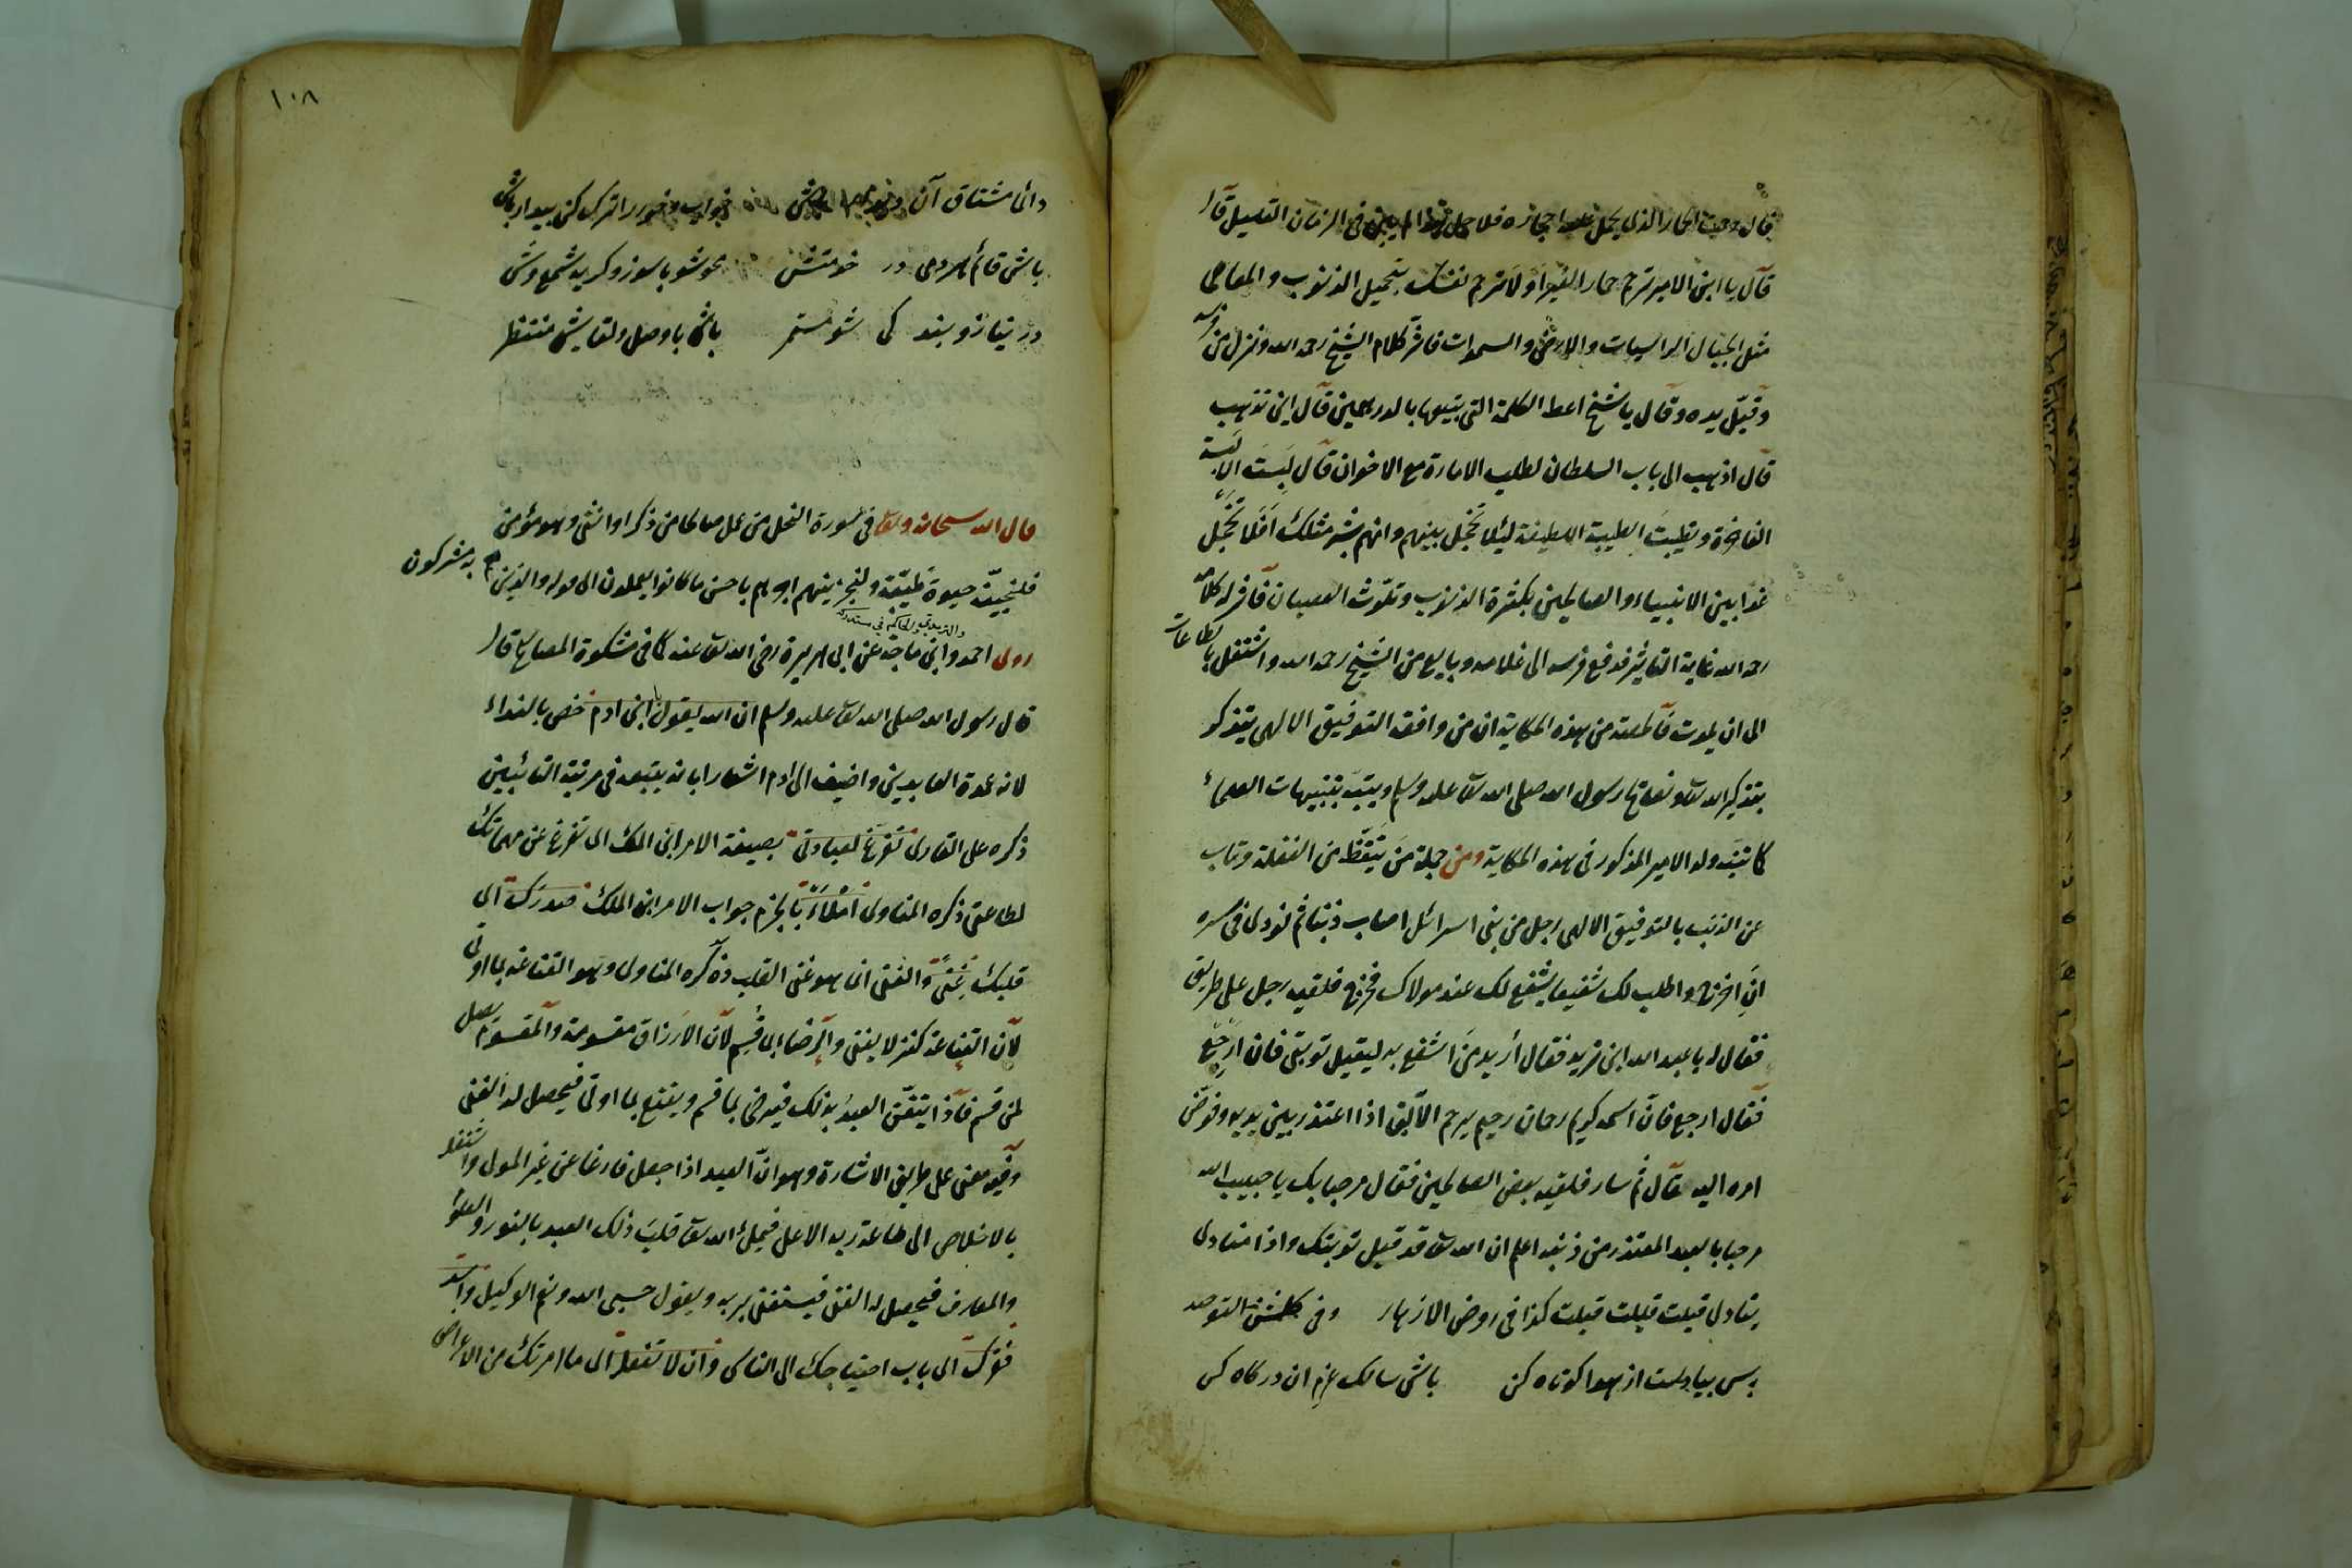 قال رحمت الحمار الذي يحمل عليه احجاره فلما حمل هذا في الزمان القليل قال
قال يا ابن الامير ترحم حمار الغير اولا ترحم نفسك بتحميل الذنوب والمعاصي
مثل الجبال الراسيات والارض والسموات فاثر كلام الشيخ رحمه الله ونزل من فرسه
وقبّل يده وقال يا شيخ اعط الكلمة التي بتيعها بالدرهمين قال اين تذهب
قال اذهب الى باب السلطان لطلب الامارة مع الاخوان قال لبست الالبسة
الفاخرة وتطيبت الطيبة اللطيفة لئلا تخجل بينهم وانهم بشر مثلك افلا تخجل
غدا بين الانبياء والصالحين بكثرة الذنوب وتلوث العصيان فاثر له كلامه
رحمه الله غاية التاثير فدفع فرسه الى غلامه وبايع من الشيخ رحمه الله واشتغل بالطاعات
الى ان يموت فالحصة من هذه الحكاية ان من وافقه التوفيق الالهي يتذكر
بتذكير الله تعالى ونصائح رسول الله صلى الله تعالى عليه وسلم ويتنبه بتنبيهات العلماء
كما تنبه ولد الامير المذكور في هذه الحكاية ومن جملة من يتيقظ من الغفلة وتاب
عن الذنب بالتوفيق الالهي رجل من بني اسرائل اصاب ذنبا ثم نودي في سره
ان اخرج واطلب لك شفيعا يشفع لك عند مولاك فخرج فلقيه رجل على طريق
فقال له يا عبد الله اين تريد فقال أريد من اشفع به ليقبل توبتي فان ارجع
فقال ارجع فان اسمه كريم رحمان رحيم يرحم الآبق اذا اعتذر بين يديه وفوّض
امره اليه قال ثم سار فلقيه بعض الصالحين فقال مرحبا بك يا حبيب الله
مرحبا بالعبد المعتذر من ذنبه اعلم ان الله تعالى قد قبل توبتك واذا مناد
ينادي قبلت قبلت قبلت كذا في روض الازهار وفي كلشن التوحيد
پس بيا دست از هوا كوتاه كن باش سالك عزم ان دركاه كن
دائما مشتاق آن خواب وخور را ترك كن بيدار باش
باش قائم هر دمى در خدمتش محو شو با سوز وكريه شمع وش
در نياز وبندكى شو مستمر باش با وصل ولقايش منتظر
قال الله سبحانه وتعالى في سورة النحل من عمل صالحا من ذكر او انثى وهو مؤمن
فلنحيينّه حيوة طيّبة ولنجزينهم اجرهم باحسن ما كانوا يعملون الى قوله والذين هم به مشركون
والترمذي والحاكم في مستدركه
روى احمد وابن ماجة عن ابي هريرة رضي الله تعالى عنه كما في مشكوة المصابيح قال
قال رسول الله صلى الله تعالى عليه وسلم ان الله يقول يا ابن ادم خص بالنداء
لانه عمدة العابدين واضيف الى ادم اشعارا بانه يتبعه في مرتبة التائبين
ذكره علي القاري تفرغ لعبادتي بصيغة الامر ابن الملك اي تفرغ عن مهماتك
لطاعتي ذكره المناوي املأ بالجزم جواب الامر ابن الملك صدرك اي
قلبك غنى والغنى انما هو غنى القلب ذكره المناوي وهو القناعة بما اوتي
لان القناعة كنز لا يفنى والرضا بما قسم لان الارزاق مقسومة والمقسوم يصل
لمن قسم فاذا يتيقن العبد بذلك فيرضى بما قسم ويقنع بما اوتي فيحصل له الغنى
وفيه معنى على طريق الاشارة وهو ان العبد اذا جعل فارغا عن غير المولى واشتغل
بالاخلاص الى طاعة ربه الاعلى فيملئ الله تعالى قلب ذلك العبد بالنور والعلوم
والمعارف فيحصل له الغنى فيستغني بربه ويقول حسبي الله ونعم الوكيل واسد
فقرك اي باب احتياجك الى الناس وان لا تفعل اي ما امرتك من الاعراض
١٠٨